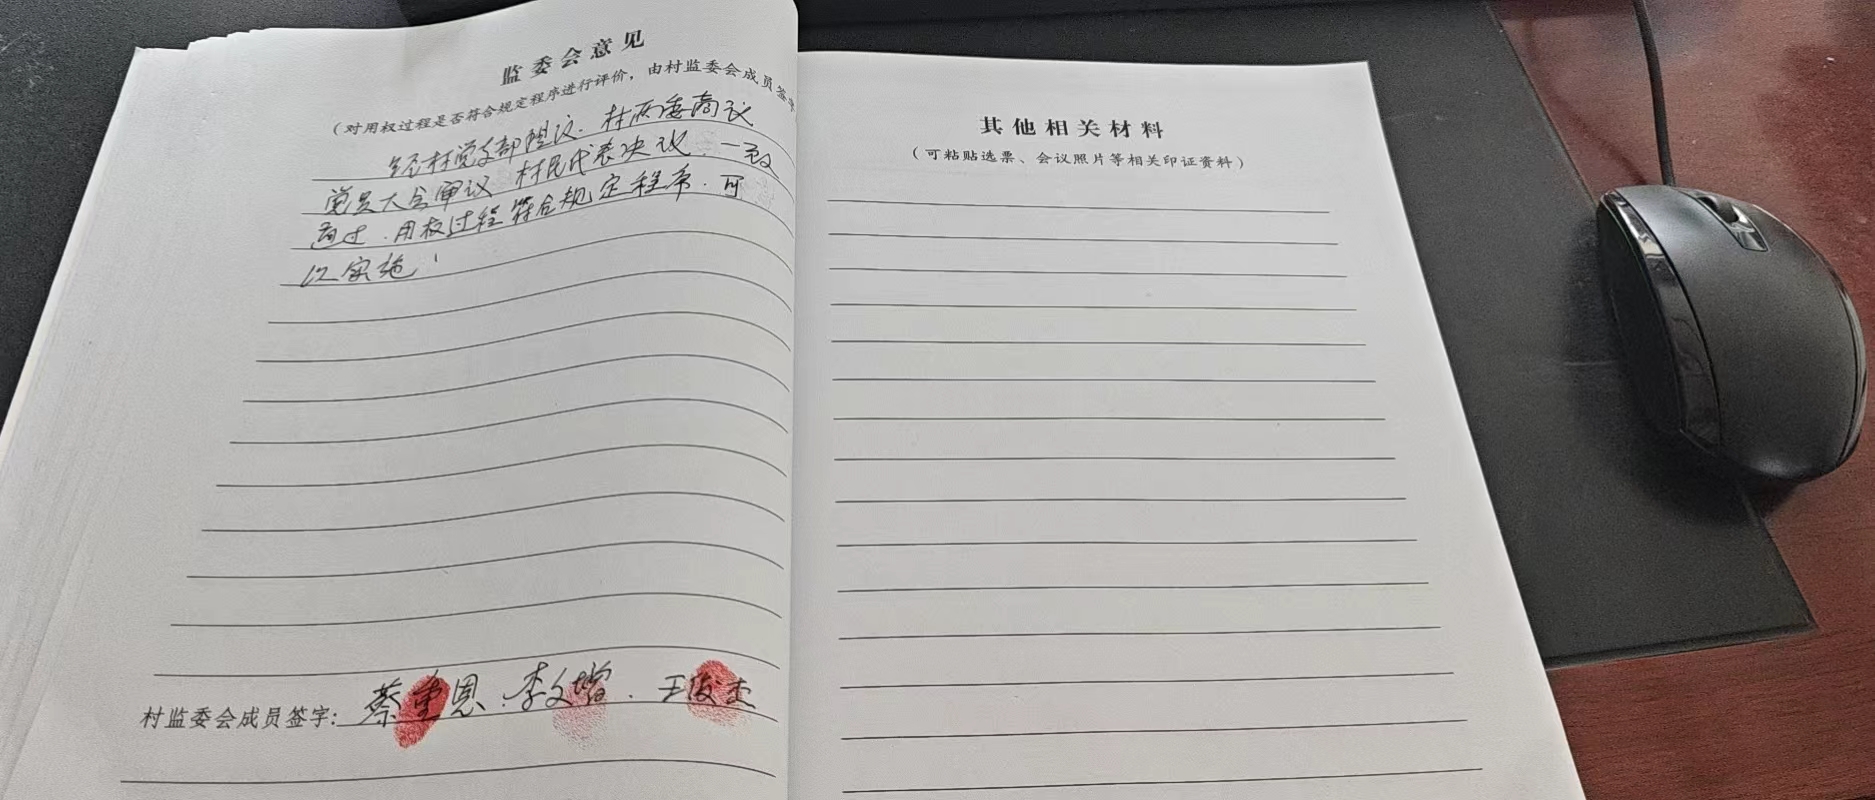 监委会意见
（对用权过程是否符合规定程序进行评价，由村监委会成员签字
经村党支部提议、村两委商议
党员大会审议 村民代表决议、一致
通过、用权过程符合规定程序、可
以实施！
村监委会成员签字：蔡重恩、李文增、王俊杰
其他相关材料
（可粘贴选票、会议照片等相关印证资料）